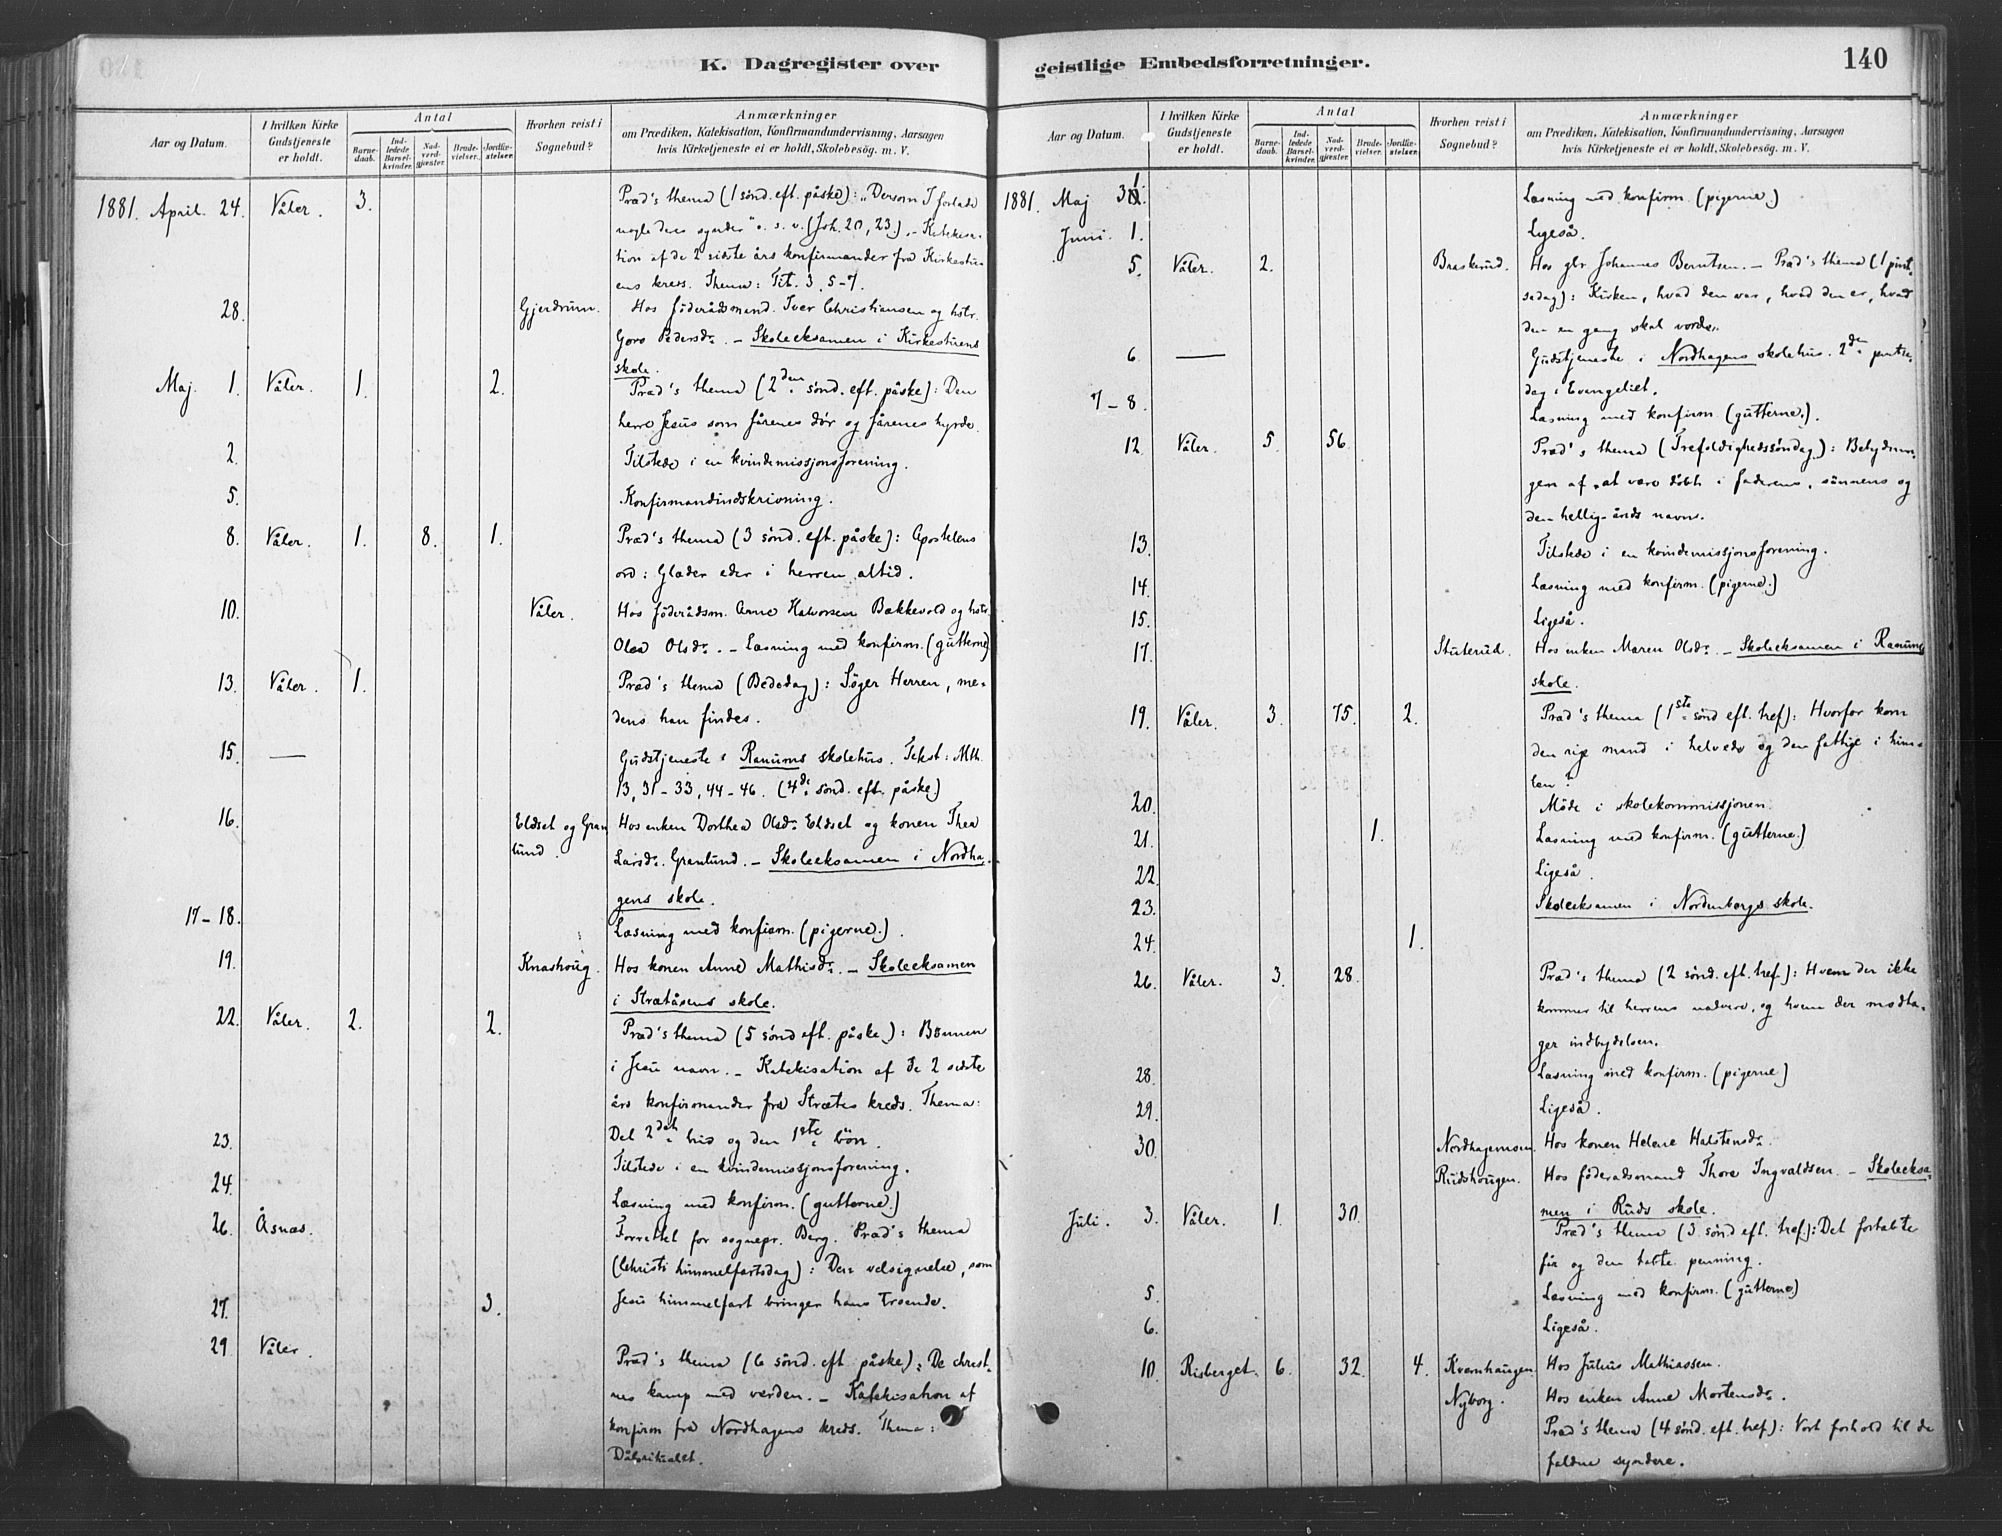 K. Dagregister over
Aar og Datum.
I hvilken Kirke Gudstjeneste er holdt.
Antal
Barnedaab.
Indledede Barselkvinder.
Nadverdgjæster.
Brudevielser.
Jordfæstelser.
Hvorhen reist i Sognebud?
Anmærkninger
om Prædiken, Katekisation, Konfirmandundervisning, Aarsagen
hvis Kirketjeneste ei er holdt, Skolebesøg. m. V.
1881. April. 24. Våler. 3. Præd's thema (1 sönd. eft. påske): "Dersom I forlade
nogle deres synder" o. s. v. (Joh. 20, 23). – Katekisa-
tion af de 2 sidste års konfirmander fra Kirkestu-
ens kreds. Thema: Tit. 3, 5-7.
28. Gjerdrum. Hos föderådsmand Iver Christiansen og hstr.
Goro Pedersdr. – Skoleeksamen i Kirkestuens
skole.
Maj. 1. Våler. 1. 2. Præd's thema (2den sönd. eft. påske): Den
herre Jesus som fårenes dör og fårenes hyrde.
2. Tilstede i en kvindemissjonsforening.
5. Konfirmandindskrivning.
8. Våler. 1. 8. 1. Præd's thema (3 sönd. eft. påske): Apostelens
ord: Glæder eder i herren altid.
10. Våler. Hos föderådsm. Arne Halvorsen Bakkevold og hstr.
Olea Olsdr. – Læsning med konfirm. (gutterne)
13. Våler. 1. Præd's thema (Bededag): Söger Herren, me-
dens han findes.
15. — Gudstjeneste i Ranums skolehus. Tekst: Mth.
13, 31-33, 44-46. (4de sönd. eft. påske)
16. Eldset og Gran Hos enken Dorthea Olsdr. Eldset og konen Thea
lund. Larsdr. Granlund. – Skoleeksamen i Nordha-
gens skole.
17-18. Læsning med konfirm. (pigerne.).
19. Knashoug. Hos konen Anne Mathisdr. – Skoleeksamen
i Stratåsens skole.
22. Våler. 2. 2. Præd's thema (5 sönd eft. påske): Bönnen
i Jesu navn. – Katekisation af de 2 sidste
års konfirmander fra Strætes kreds. Thema:
Det 2det bud og den 1ste bön.
23. Tilstede i en kvindemissjonsforening.
24. Læsning med konfirm. (gutterne.)
26. Åsnæs. Forrettet for sognepr. Berg. Præd's thema
(Christi himmelfartsdag): Den velsignelse, som
27. 3. Jesu himmelfart bringer hans troende.
29 Våler. Præd's thema (6 sönd. eft. påske): De christ-
nes kamp med verden. – Katekisation af
konfirm fra Nordhagens kreds. Thema:
Dåbsritualet.
geistlige Embedsforretninger.
140
Aar og Datum.
I hvilken Kirke Gudstjeneste er holdt.
Antal
Barnedaab.
Indledede Barselkvinder.
Nadverdgjæster.
Brudevielser.
Jordfæstelser.
Hvorhen reist i Sognebud?
Anmærkninger
om Prædiken, Katekisation, Konfirmandundervisning, Aarsagen
hvis Kirketjeneste ei er holdt, Skolebesøg. m. V.
1881. Maj 31. Læsning med konfirm. (pigerne.)
Juni. 1. Ligeså.
5. Våler. 2. Braskerud. Hos gbr Johannes Berntsen. – Præd's thema (1 pint-
sedag): Kirken, hvad den var, hvad den er, hvad
den en gang skal vorde.
6. — Gudstjeneste i Nordhagens skolehus. 2den pintse-
dag's Evangeliet.
7-8. Læsning med konfirm. (gutterne.).
12. Våler. 5. 56. Præd's thema (Trefoldighedssöndag): Betydnin-
gen af at være döbt i faderens, sönnens og
den hellig-ånds navn.
13. Tilstede i en kvindemissjonsforening.
14. Læsning med konfirm. (pigerne.)
15. Ligeså.
17. Stuterud. Hos enken Maren Olsdr. – Skoleeksamen i Ranums
skole.
19. Våler. 3. 75. 2. Præd's thema (1ste sönd eft. tref): Hvorfor kom
den rige mand i helvede og den fattige i him-
len?
20. Möde i skolekommissjonen.
21. 1. Læsning med konfirm. (gutterne.)
22. Ligeså.
23. Skoleeksamen i Nordenborgs skole.
24. 1.
26. Våler. 3. 28. Præd's thema (2 sönd. eft. tref.): Hvem der ikke
kommer til herrens nadvere, og hvem der modta-
ger indbydelsen.
28. Læsning med konfirm. (pigerne)
29. Ligeså.
30. Nordhagemoen Hos konen Helene Halstensdr.
Rudshougen. Hos föderadsmand Thore Ingvaldsen. – Skoleeksa-
men i Ruds skole.
Juli. 3. Våler. 1. 30. Præd's thema (3 sönd eft. tref.): Det fortabte
får og den tabte penning.
5. Læsning med konfirm. (gutterne)
6. Ligeså.
10. Risberget. 6. 32. 4. Kvernhaugen Hos Julius Mathiassen.
Nyborg. Hos enken Anne Mortensdr.
Præd's thema (4 sönd. eft. tref): Vort forhold til de
faldne syndere.